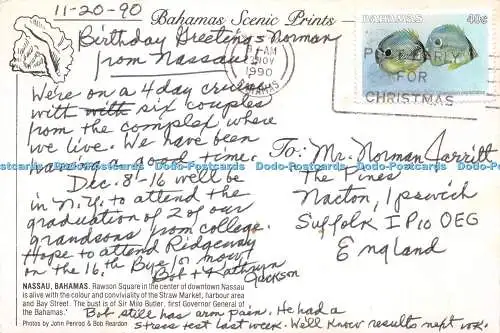 11-20-90
Bahamas Scenic Prints
Birthday Greetings Norman
from Nassau
We're on a 4 day cruise
with with six couples
from the complex where
we live. We have been
having a good time.
Dec. 8-16 we'll be
in N.Y. to attend the
graduation of 2 of our
grandsons from college.
Hope to attend Ridgeway
on the 16th. Bye for now,
Bob + Kathryn
Jackson
Bob still has arm pain. He had a
stress test last week. We'll know results next wk.
BAHAMAS 40c
AM
NOV
1990
BAHAMAS
POST EARLY
FOR
CHRISTMAS
To: Mr. Norman Jarritt
The Pines
Nacton, Ipswich
Suffolk IP10 OEG
England
Dodo-Postcards Dodo-Postcards Dodo-Postcards Dodo-Postcards Dodo-Postcards
NASSAU, BAHAMAS. Rawson Square in the center of downtown Nassau
is alive with the colour and conviviality of the Straw Market, harbour area
and Bay Street. The bust is of Sir Milo Butler, first Governor General of
the Bahamas.
Photos by John Penrod & Bob Reardon